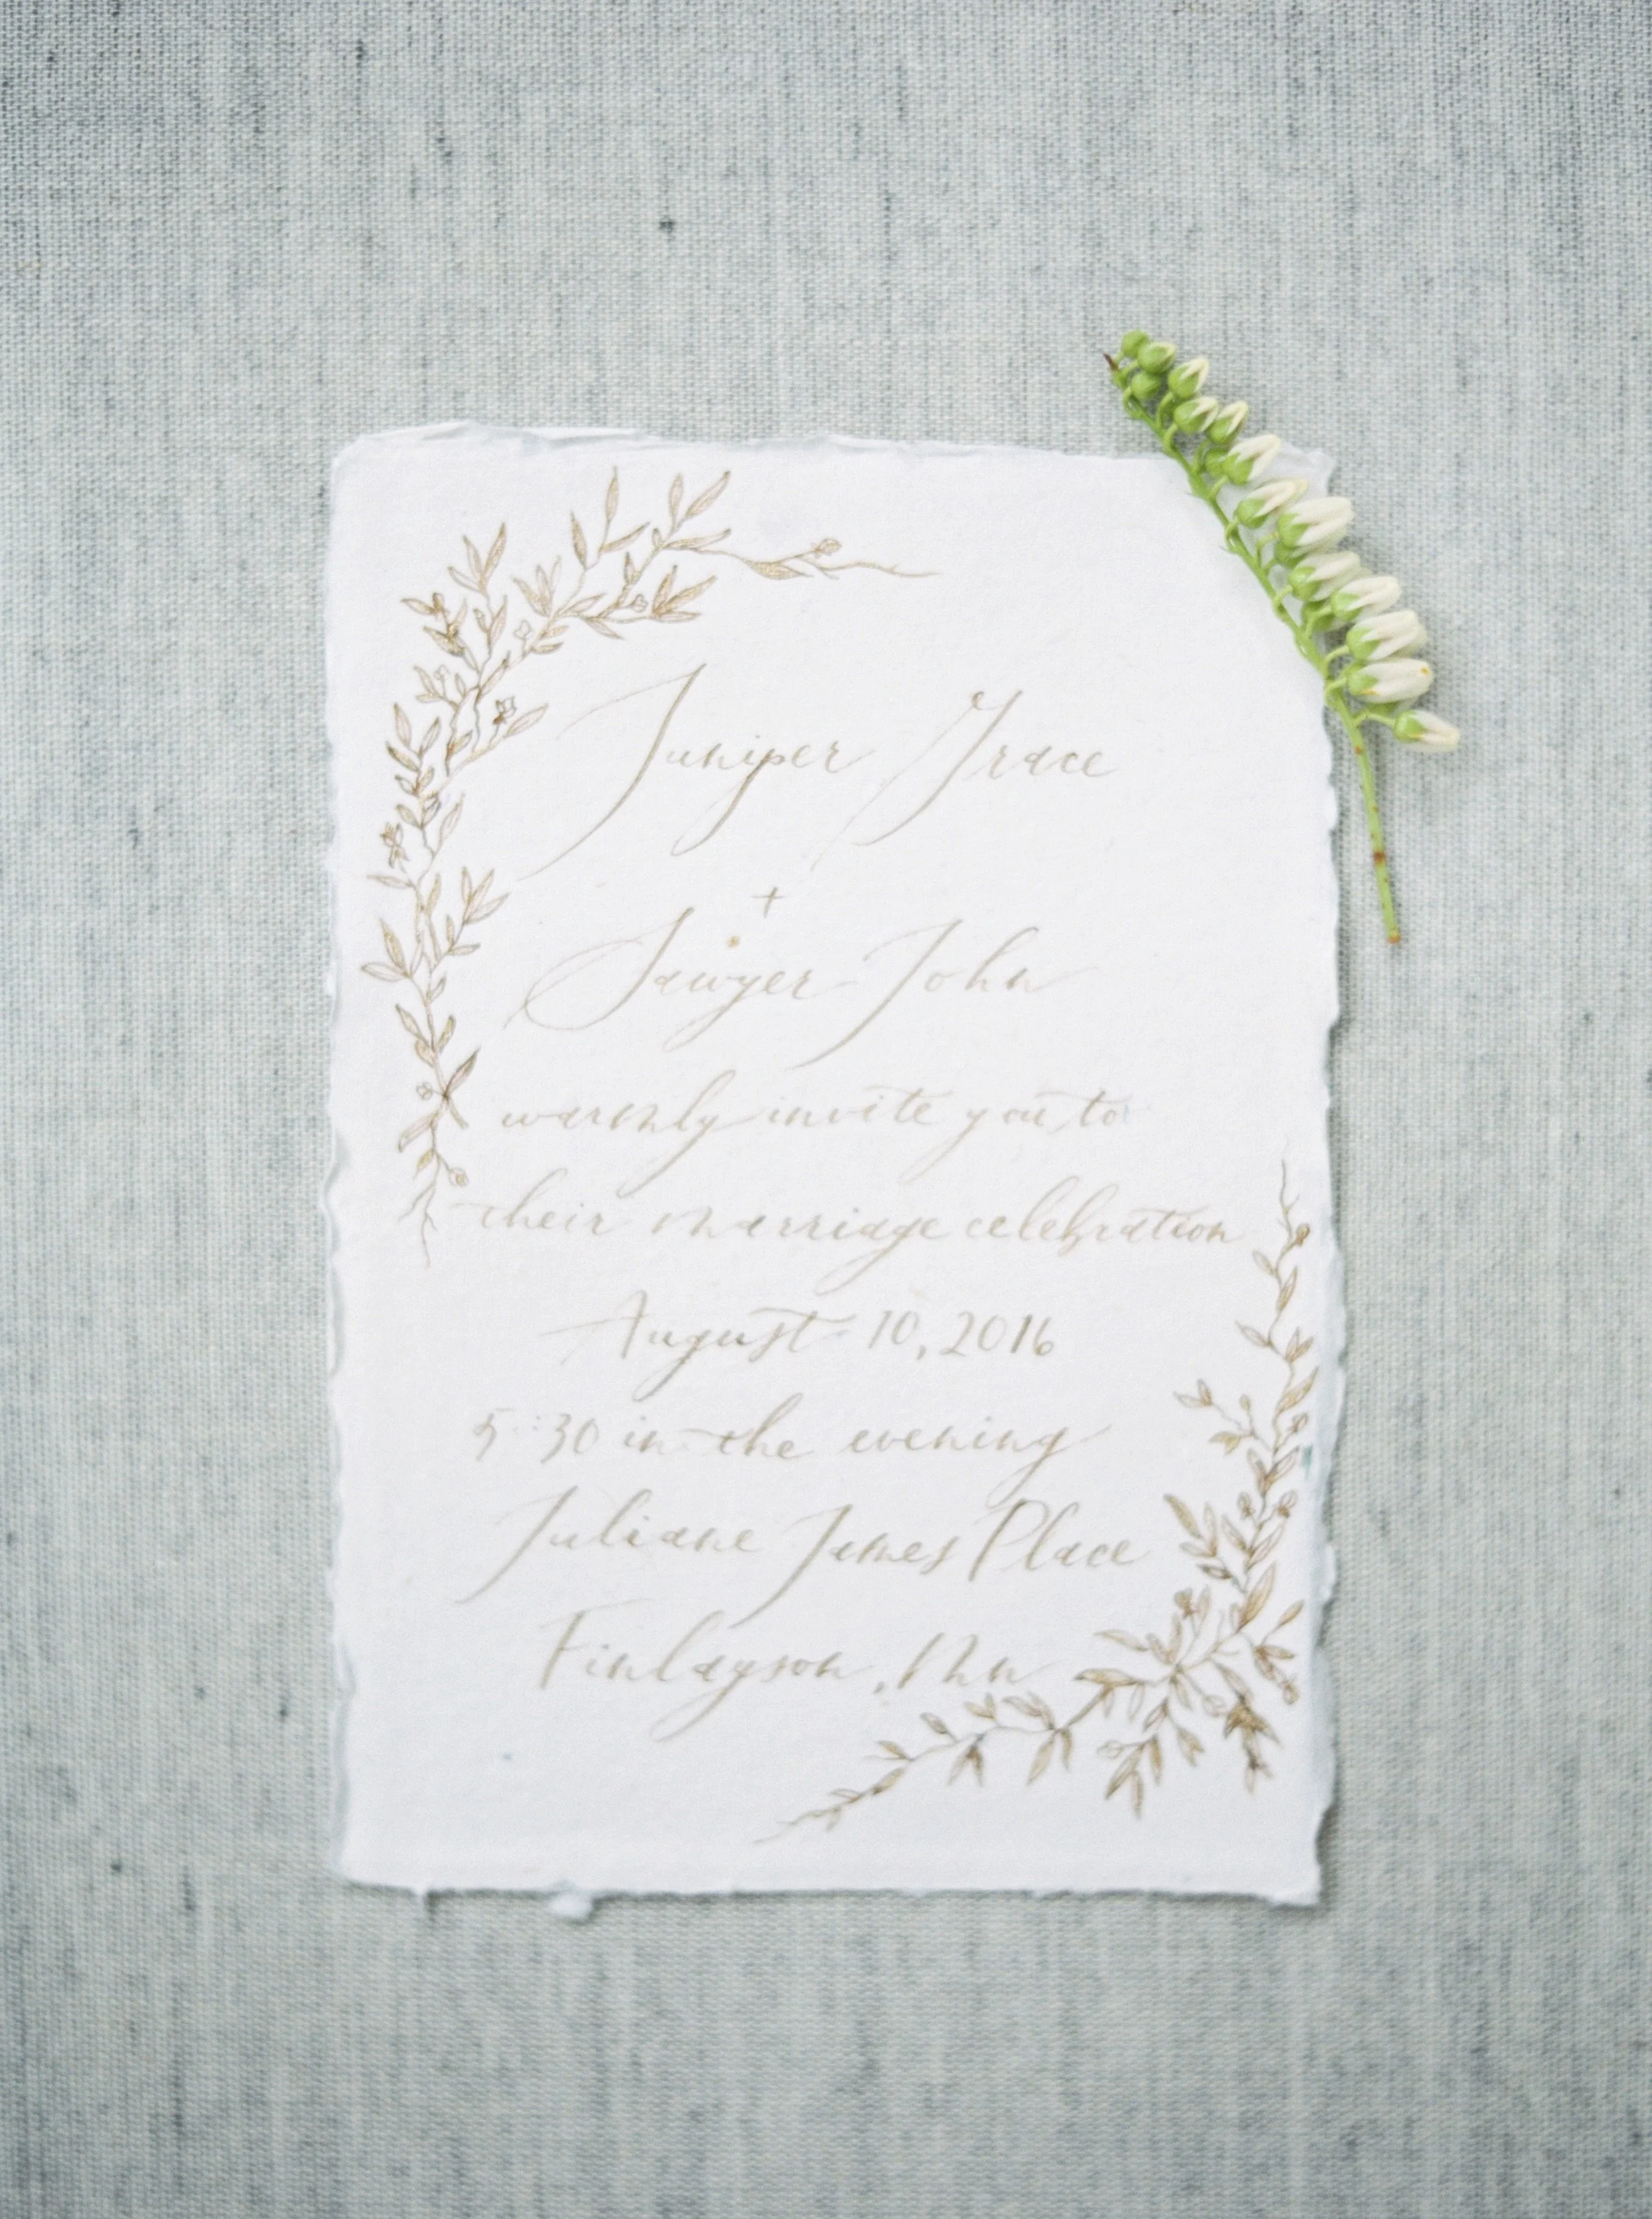 Juniper Grace
+
Sawyer John
warmly invite you to
their marriage celebration
August 10, 2016
5:30 in the evening
Juliane James Place
Finlayson, Mn